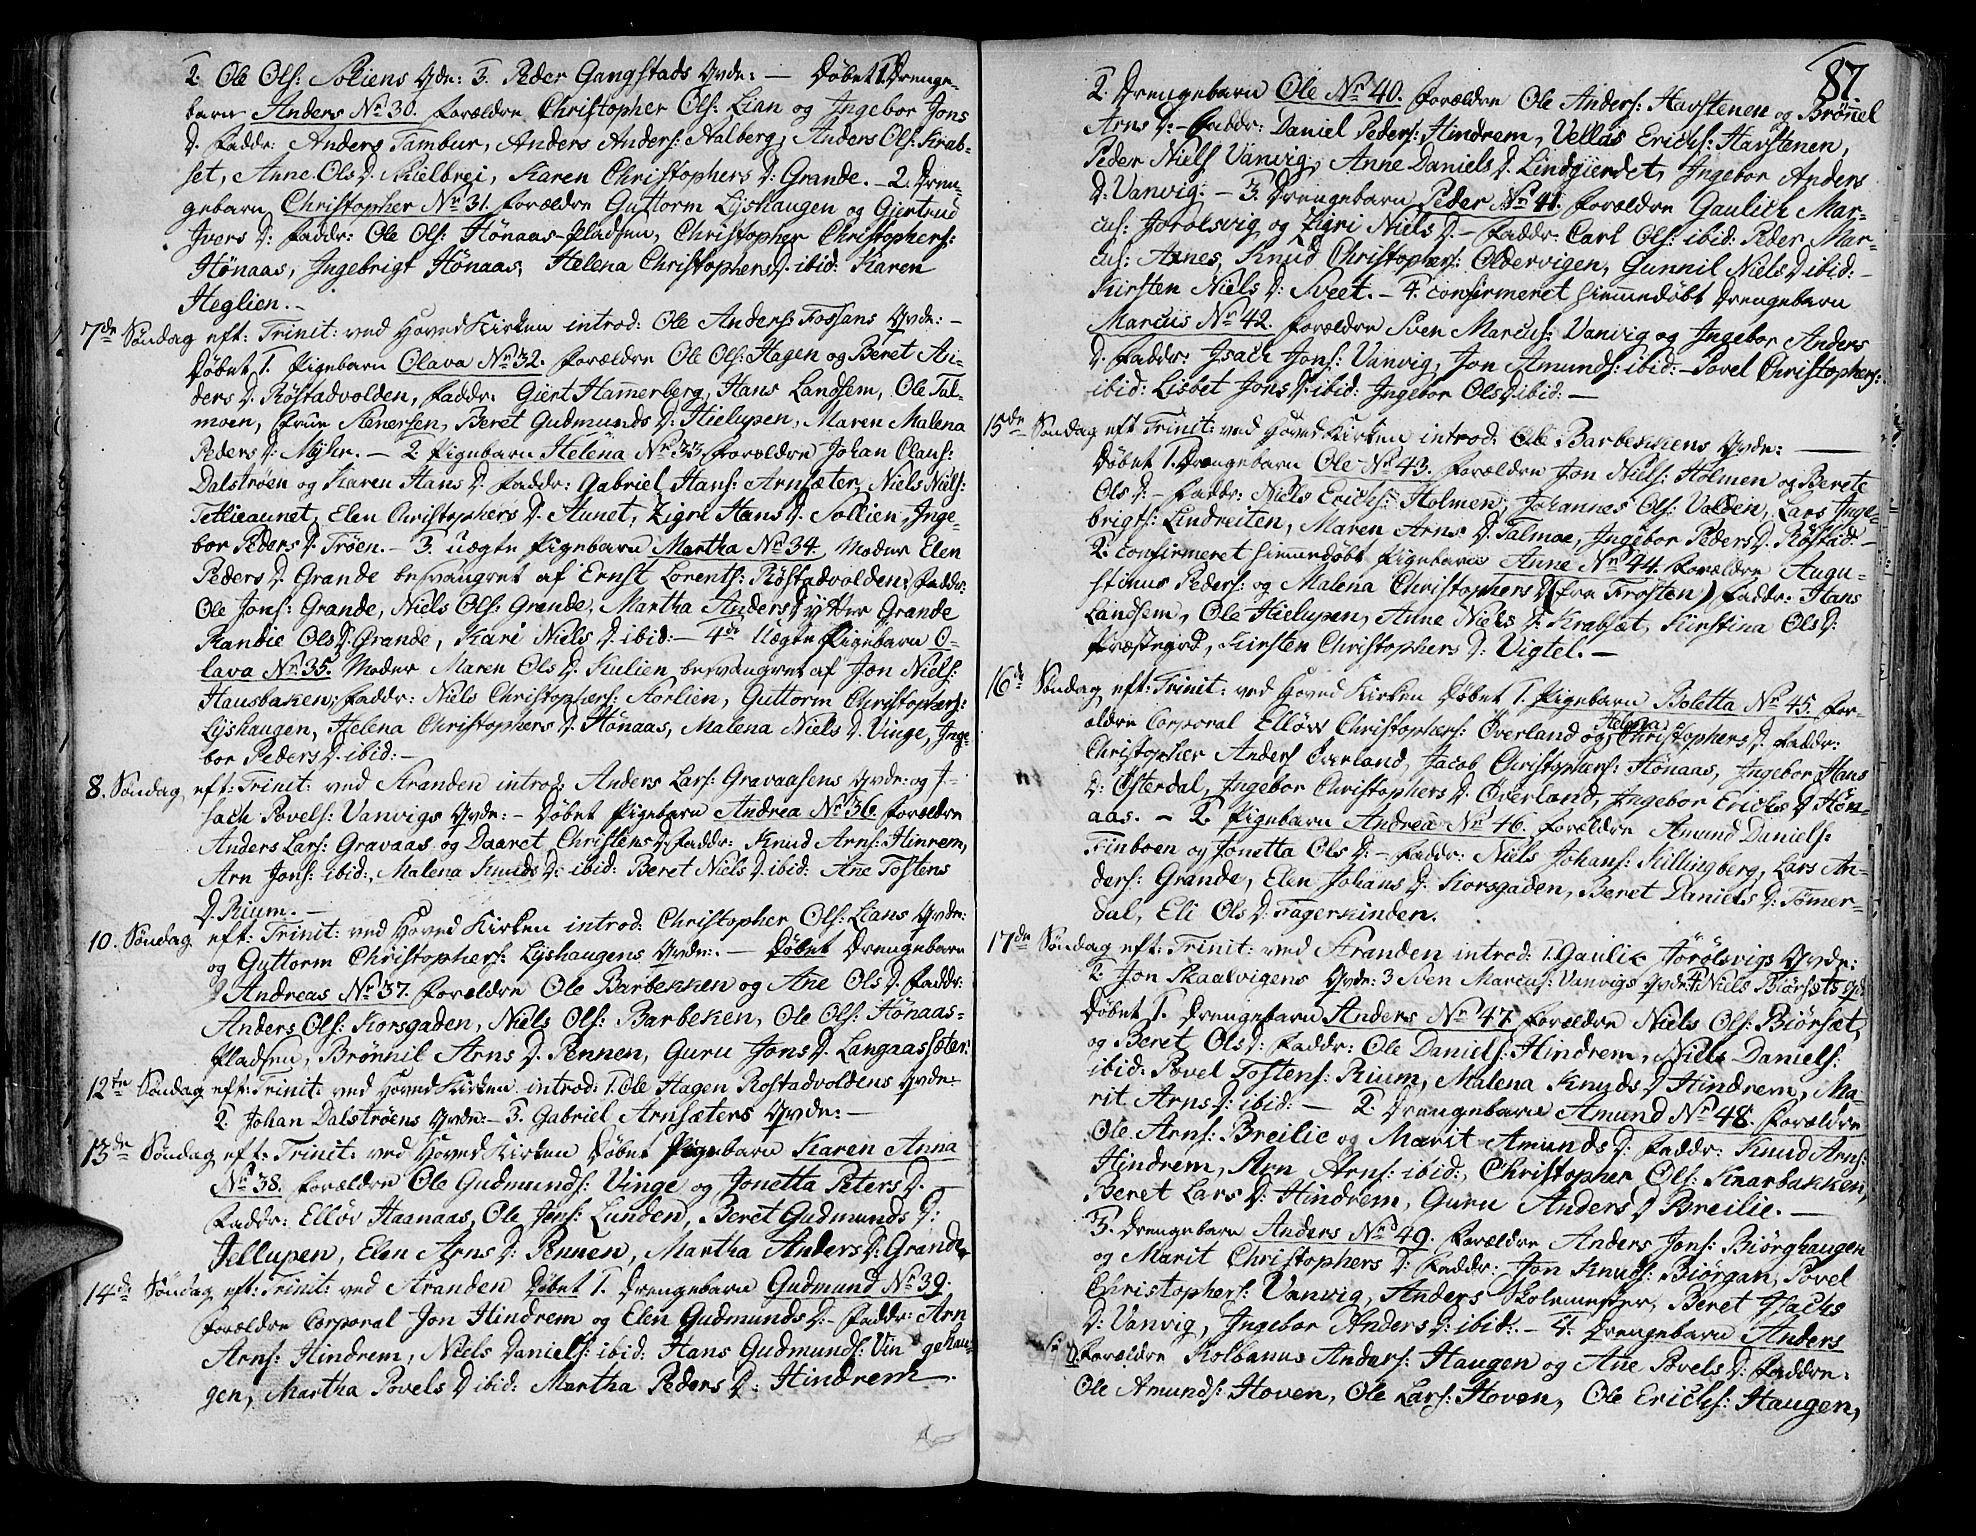 2. Ole Ols: Soliens Qvde: 3. Peder Gangstads Qvde: — Døbet 1. Drenge-
barn Anders No 30. Forældre Christopher Ols: Lian og Ingebor Jons
D. Faddr: Anders Tambur, Anders Anders: Aalberg, Anders Ols: Krab-
set, Anne Ols D. Skielbrei, Karen Christophers D: Grande. — 2. Dren-
gebarn Christopher No 31. Forældre Guttorm Lyshaugen og Giertrud
Ivers D: Faddr: Ole Ols: Hönaas-Pladsen, Christopher Christophers:
Hönaas, Ingebrigt Hönaas, Helena Christophers D. ibid: Karen
Heglien. —
7de Søndag eft: Trinit: ved Hoved Kirken introd: Ole Anders: Fossans Qvde: —
Døbet 1. Pigebarn Olava No 32. Forældre Ole Ols: Hagen og Beret An-
ders D. Röstadvolden, Faddr. Giert Hamerberg, Hans Landsem, Ole Tal-
moen, Frue Stenersen, Beret Gudmunds D: Hielupen, Maren Malena
Peders D: Myhr. — 2 Pigebarn Helena No 33 Forældre Johan Claus:
Dalströen og Karen Hans D. Faddr: Gabriel Hans: Arnsæter, Niels Niels:
Tetlieaunet, Elen Christophers D. Aunet, Zigri Hans D. Sollien, Inge-
bor Peders D. Tröen. — 3. uægte Pigebarn Martha No 34. Moder Elen
Peders D. Grande besvangret af Ernst Lorents: Röstadvolden, Faddr:
Ole Jons: Grande, Niels Ols: Grande, Martha Anders D ytter Grande
Randie Ols D: Grande, Kari Niels D: ibid: — 4de Uægte Pigebarn O-
lava No 35. Moder Maren Ols D. Kulien besvangret af Jon Niels:
Hausbaken; Faddr: Niels Christophers: Aarlien, Guttorm Christophers:
Lyshaugen, Helena Christophers D. Hönaas, Malena Niels D. Vinge, Inge-
bor Peders D. ibid: —
8. Søndag eft: Trinit: ved Stranden introd: Anders Lars: Gravaasens Qvde: og I-
sach Povels: Vanvigs Qvde: — Døbet Pigebarn Andrea No 36. Forældre
Anders Lars: Gravaas og Daaret Christens D. Faddr: Knud Arns: Hinrem,
Arn Jons: ibid:, Malena Knuds D: ibid: Beret Niels D. ibid: Ane Tostens
D. Rium. —
10. Søndag eft: Trinit: ved Hoved Kirken introd: Christopher Ols: Lians Qvde:
og Guttorm Christophers: Lyshaugens Qvde:. — Døbet Drengebarn
Andreas No 37. Forældre Ole Barbekken og Ane Ols D. Faddr:
Anders Ols: Korsgaden, Niels Ols: Barbeken, Ole Ols: Hönaas-
Pladsen, Brönnil Arns D. Pennen, Guru Jons D. Langaassæter.
12te Søndag eft: Trinit: ved Hoved Kirken introd: 1. Ole Hagen Rostadvoldens Qvde:
2. Johan Dalströens Qvde: — 3. Gabriel Arnsæters Qvde: —
13de Søndag eft: Trinit: ved Hoved Kirken Døbet Pigebarn Karen Anna
No 38. Forældre Ole Gudmunds: Vinge og Jonetta Peters D. —
Faddr: Ellöv Haanaas, Ole Jens: Lunden, Beret Gudmunds D:
Jellupen, Elen Arns D: Pennen, Martha Anders D: Grande.
14de Søndag eft: Trinit: ved Stranden Døbet 1. Drengebarn Gudmund No 39.
Forældre Corporal Jon Hindrem og Elen Gudmunds D: — Faddr: Arn
Arns: Hindrem, Niels Daniels: ibid: Hans Gudmunds: Vingehau-
gen, Martha Povels D ibid: Martha Peders D. Hindrem.
87
2. Drengebarn Ole No 40. Forældre Ole Anders: Harstenen og Brönel
Arns D: — Faddr: Daniel Peders: Hindrem, Vellas Erichs: Harstenen,
Peder Niels Vanvig, Anne Daniels D. Lindgierdet, Ingebor Anders
D. Vanvig. — 3. Drengebarn Peder No 41. Forældre Gaulich Mar-
cus: Jorolsvig og Zigri Niels D. — Faddr. Carl Ols: ibid: Peder Mar-
cus: Arnes, Knud Christophers: Oldervigen, Gunnil Niels D. ibid: —
Kirsten Niels D: Sveet. — 4. Confirmeret Hiemmedøbt Drengebarn
Marcus No 42. Forældre Sven Marcus: Vanvig og Ingebor Anders
D. Faddr: Isach Jons: Vanvig, Jon Amunds: ibid: — Povel Christophers:
ibid: Lisbet Jons D. ibid: Ingebor Ols D. ibid: —
15de Søndag eft Trinit: ved Hoved Kirken introd: Ole Barbekkens Qvde: —
Døbet 1. Drengebarn Ole No 43. Forældre Jon Niels: Holmen og Berete
Ols D. — Faddr: Niels Erichs: Holmen, Johannes Ols: Valden, Lars Inge-
brigts: Lindreiten, Maren Arns D. Talmoe, Ingebor Peders D. Röstad: —
2. Confirmeret hiemmedøbt Pigebarn Anne No 44. Forældre Augu-
stinus Peders: og Malena Christophers D (fra Frosten) Faddr: Hans
Landsem, Ole Hielupen, Anne Niels D: Krabsæt, Kirstina Ols D:
Præstegrd, Kirsten Christophers D: Vigtel. —
16de Søndag eft: Trinit: ved Hoved Kirken Døbet 1. Pigebarn Boletta No 45. For-
ældre Corporal Ellöv Christophers: Överland og Helena Christophers D. Faddr:
Christopher Anders Överland, Jacob Christophers: Hönaas, Ingebor Hans
D: Österdal, Ingebor Christophers D. Överland, Ingebor Erichs D. Hön-
aas. — 2. Pigebarn Andrea No 46. Forældre Amund Daniels:
Trinboen og Jonetta Ols D: — Faddr: Niels Johans: Killingberg, Lars An-
ders: Grande, Elen Johans D. Korsgaden, Beret Daniels D: Tömer-
dal, Eli Ols D: Fagerkinden.
17de Søndag eft: Trinit: ved Stranden introd: 1. Gaulic Jörölsvigs Qvde:
2. Jon Skaalvigens Qvde: 3 Sven Marcus: Vanvigs Qvde: 4. Niels Biörsets Qvd
Døbet 1. Drengebarn Anders No 47. Forældre Niels Ols: Biörsæt,
og Beret Ols D: Faddr: Ole Daniels: Hindrem, Niels Daniels:
ibid: Povel Tostens: Rium, Malena Knuds D. Hindrem, Ma-
rit Arns D: ibid: — 2. Drengebarn Amund No 48. Forældre
Ole Arns: Breilie og Marit Amunds D: Faddr: Knud Arns:
Hindrem, Arn Arns: ibid:, Christopher Ols: Knarbakken,
Beret Lars D: Hindrem, Guru Anders D. Breilie. —
3. Drengebarn Anders No 49. Forældre Anders Jons: Biörghaugen
og Marit Christophers D: Faddr: Jon Knuds: Biörgan, Povel
Christophers: Vanvig, Anders Skolemester, Beret Isachs
D: Vanvig, Ingebor Anders D: ibid: — 4. Drengebarn Anders
Forældre Kolbanus Anders: Haugen og Ane Povels D: Faddre:
Ole Amunds: Hoven, Ole Lars: Hoven, Ole Erichs: Haugen,